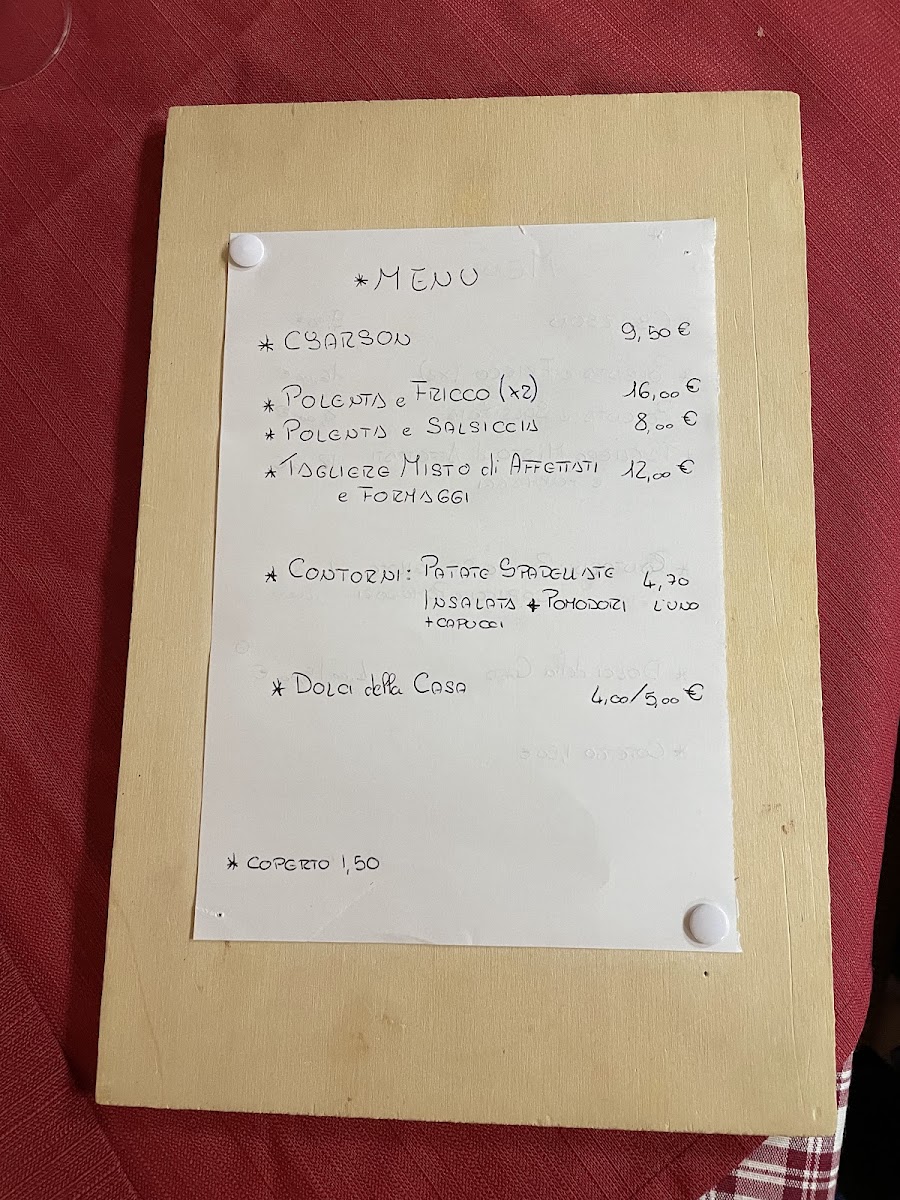 * MENU
* CYARSON 9,50 €
* POLENTA e FRICCO (x2) 16,00 €
* POLENTA e SALSICCIA 8,00 €
* TAGLIERE MISTO di AFFETTATI 12,00 €
e FORMAGGI
* CONTORNI: PATATE SPADELLATE 4,70
INSALATA + POMODORI L'UNO
+ CAPUCCI
* DOLCI della CASA 4,00/5,00 €
* COPERTO 1,50